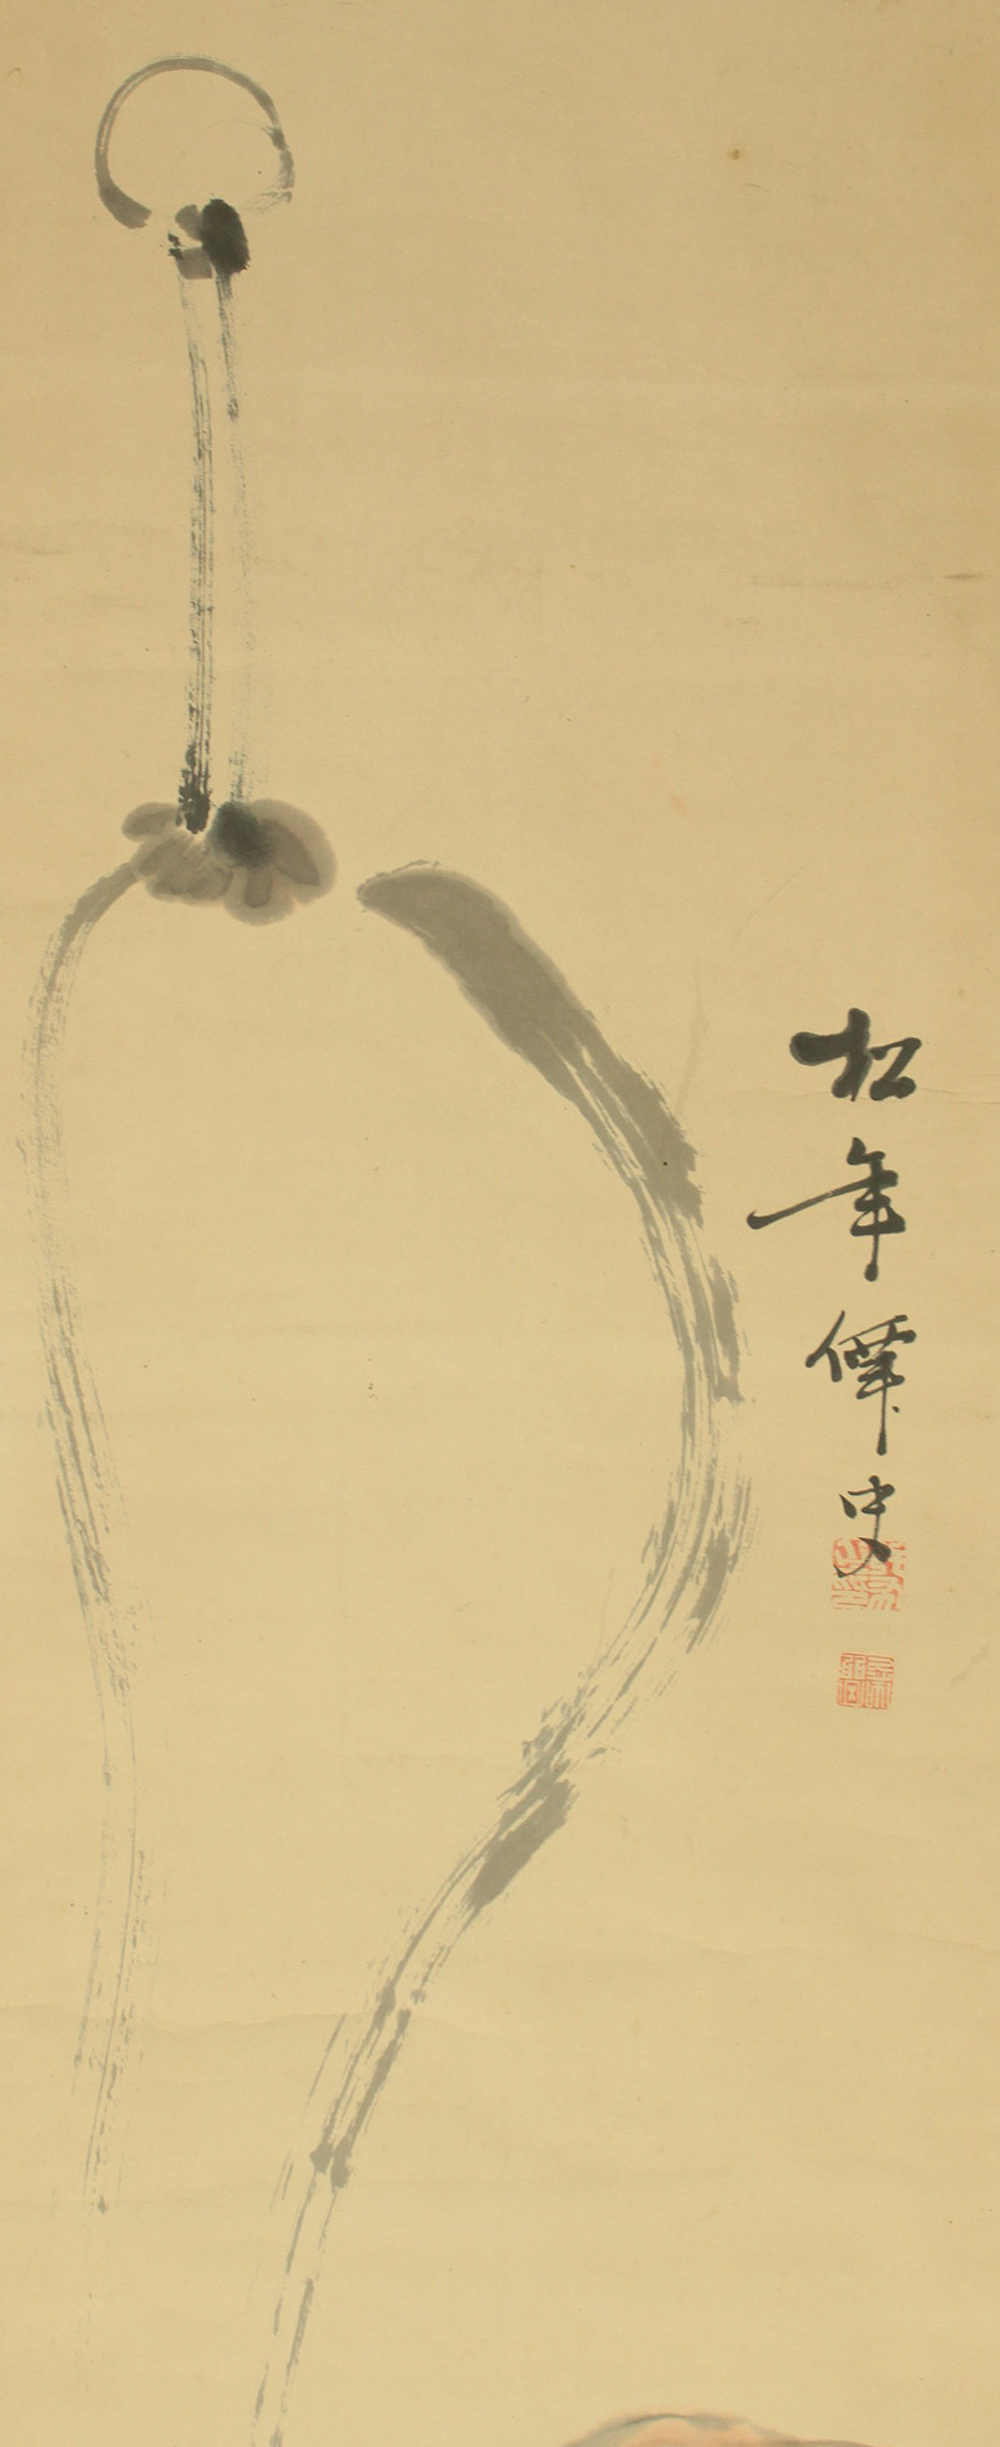 松年僊史